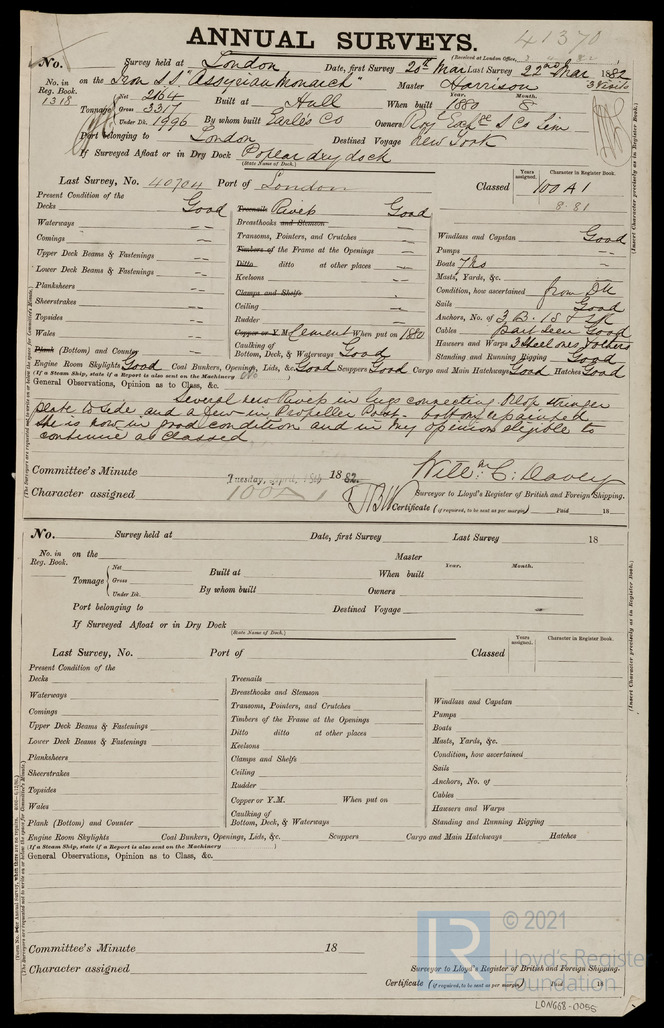 41370
ANNUAL SURVEYS.
(Received at London Office,
No. Survey held at London Date, first Survey 20th Mar Last Survey 22nd Mar 1882
No. in Reg. Book. on the Iron S.S. "Assyrian Monarch" Master Harrison 3 Visits
1318
Tonnage Net 2164 Gross 3317 Under Dk. 1996 Built at Hull When built Year. 1880 Month. 8
By whom built Earle's Co Owners Roy. Exch S Co Lim
Port belonging to London Destined Voyage New York
If Surveyed Afloat or in Dry Dock Poplar dry dock
(State Name of Dock.)
Last Survey, No. 40704 Port of London Classed Years assigned. Character in Register Book. 100 A1
8.81
(Insert Character precisely as in Register Book.)
Present Condition of the
Decks Good
Waterways
Comings
Upper Deck Beams & Fastenings
Lower Deck Beams & Fastenings
Planksheers
Sheerstrakes
Topsides
Wales
Plank (Bottom) and Counter
Treenails Rivets Good
Breasthooks and Stemson
Transoms, Pointers, and Crutches
Timbers of the Frame at the Openings
Ditto ditto at other places
Keelsons
Clamps and Shelfs
Ceiling
Rudder
Copper or Y.M. Cement When put on 1880
Caulking of
Bottom, Deck, & Waterways Good
Windlass and Capstan Good
Pumps
Boats 7 No
Masts, Yards, &c.
Condition, how ascertained from Dk
Sails Good
Anchors, No. of 3 B. 1 S & 2 K
Cables part seen Good
Hawsers and Warps 3 Steel ones & others
Standing and Running Rigging Good
Engine Room Skylights Good Coal Bunkers, Openings, Lids, &c. Good Scuppers Good Cargo and Main Hatchways Good Hatches Good
(If a Steam Ship, state if a Report is also sent on the Machinery No )
General Observations, Opinion as to Class, &c.
Several new Rivets in lugs connecting Dk top stringer
plate to side and a few in Propeller Post. bottom repainted
She is now in good condition and in my opinion eligible to
continue as Classed
Committee's Minute Tuesday, April, 18th 1882.
Will:m C: Davey
Character assigned 100 A1
Surveyor to Lloyd's Register of British and Foreign Shipping.
Certificate (if required, to be sent as per margin) Paid 18
No. Survey held at Date, first Survey Last Survey 18
No. in Reg. Book. on the Master
Tonnage Net Gross Under Dk. Built at When built Year. Month.
By whom built Owners
Port belonging to Destined Voyage
If Surveyed Afloat or in Dry Dock
(State Name of Dock.)
Last Survey, No. Port of Classed Years assigned. Character in Register Book.
(Insert Character precisely as in Register Book.)
Present Condition of the
Decks
Waterways
Comings
Upper Deck Beams & Fastenings
Lower Deck Beams & Fastenings
Planksheers
Sheerstrakes
Topsides
Wales
Plank (Bottom) and Counter
Treenails
Breasthooks and Stemson
Transoms, Pointers, and Crutches
Timbers of the Frame at the Openings
Ditto ditto at other places
Keelsons
Clamps and Shelfs
Ceiling
Rudder
Copper or Y.M. When put on
Caulking of
Bottom, Deck, & Waterways
Windlass and Capstan
Pumps
Boats
Masts, Yards, &c.
Condition, how ascertained
Sails
Anchors, No. of
Cables
Hawsers and Warps
Standing and Running Rigging
Engine Room Skylights Coal Bunkers, Openings, Lids, &c. Scuppers Cargo and Main Hatchways Hatches
(If a Steam Ship, state if a Report is also sent on the Machinery )
General Observations, Opinion as to Class, &c.
Committee's Minute 18
Character assigned
Surveyor to Lloyd's Register of British and Foreign Shipping.
Certificate (if required, to be sent as per margin) Paid 18
LR © 2021
Lloyd's Register
Foundation
LON668-0055